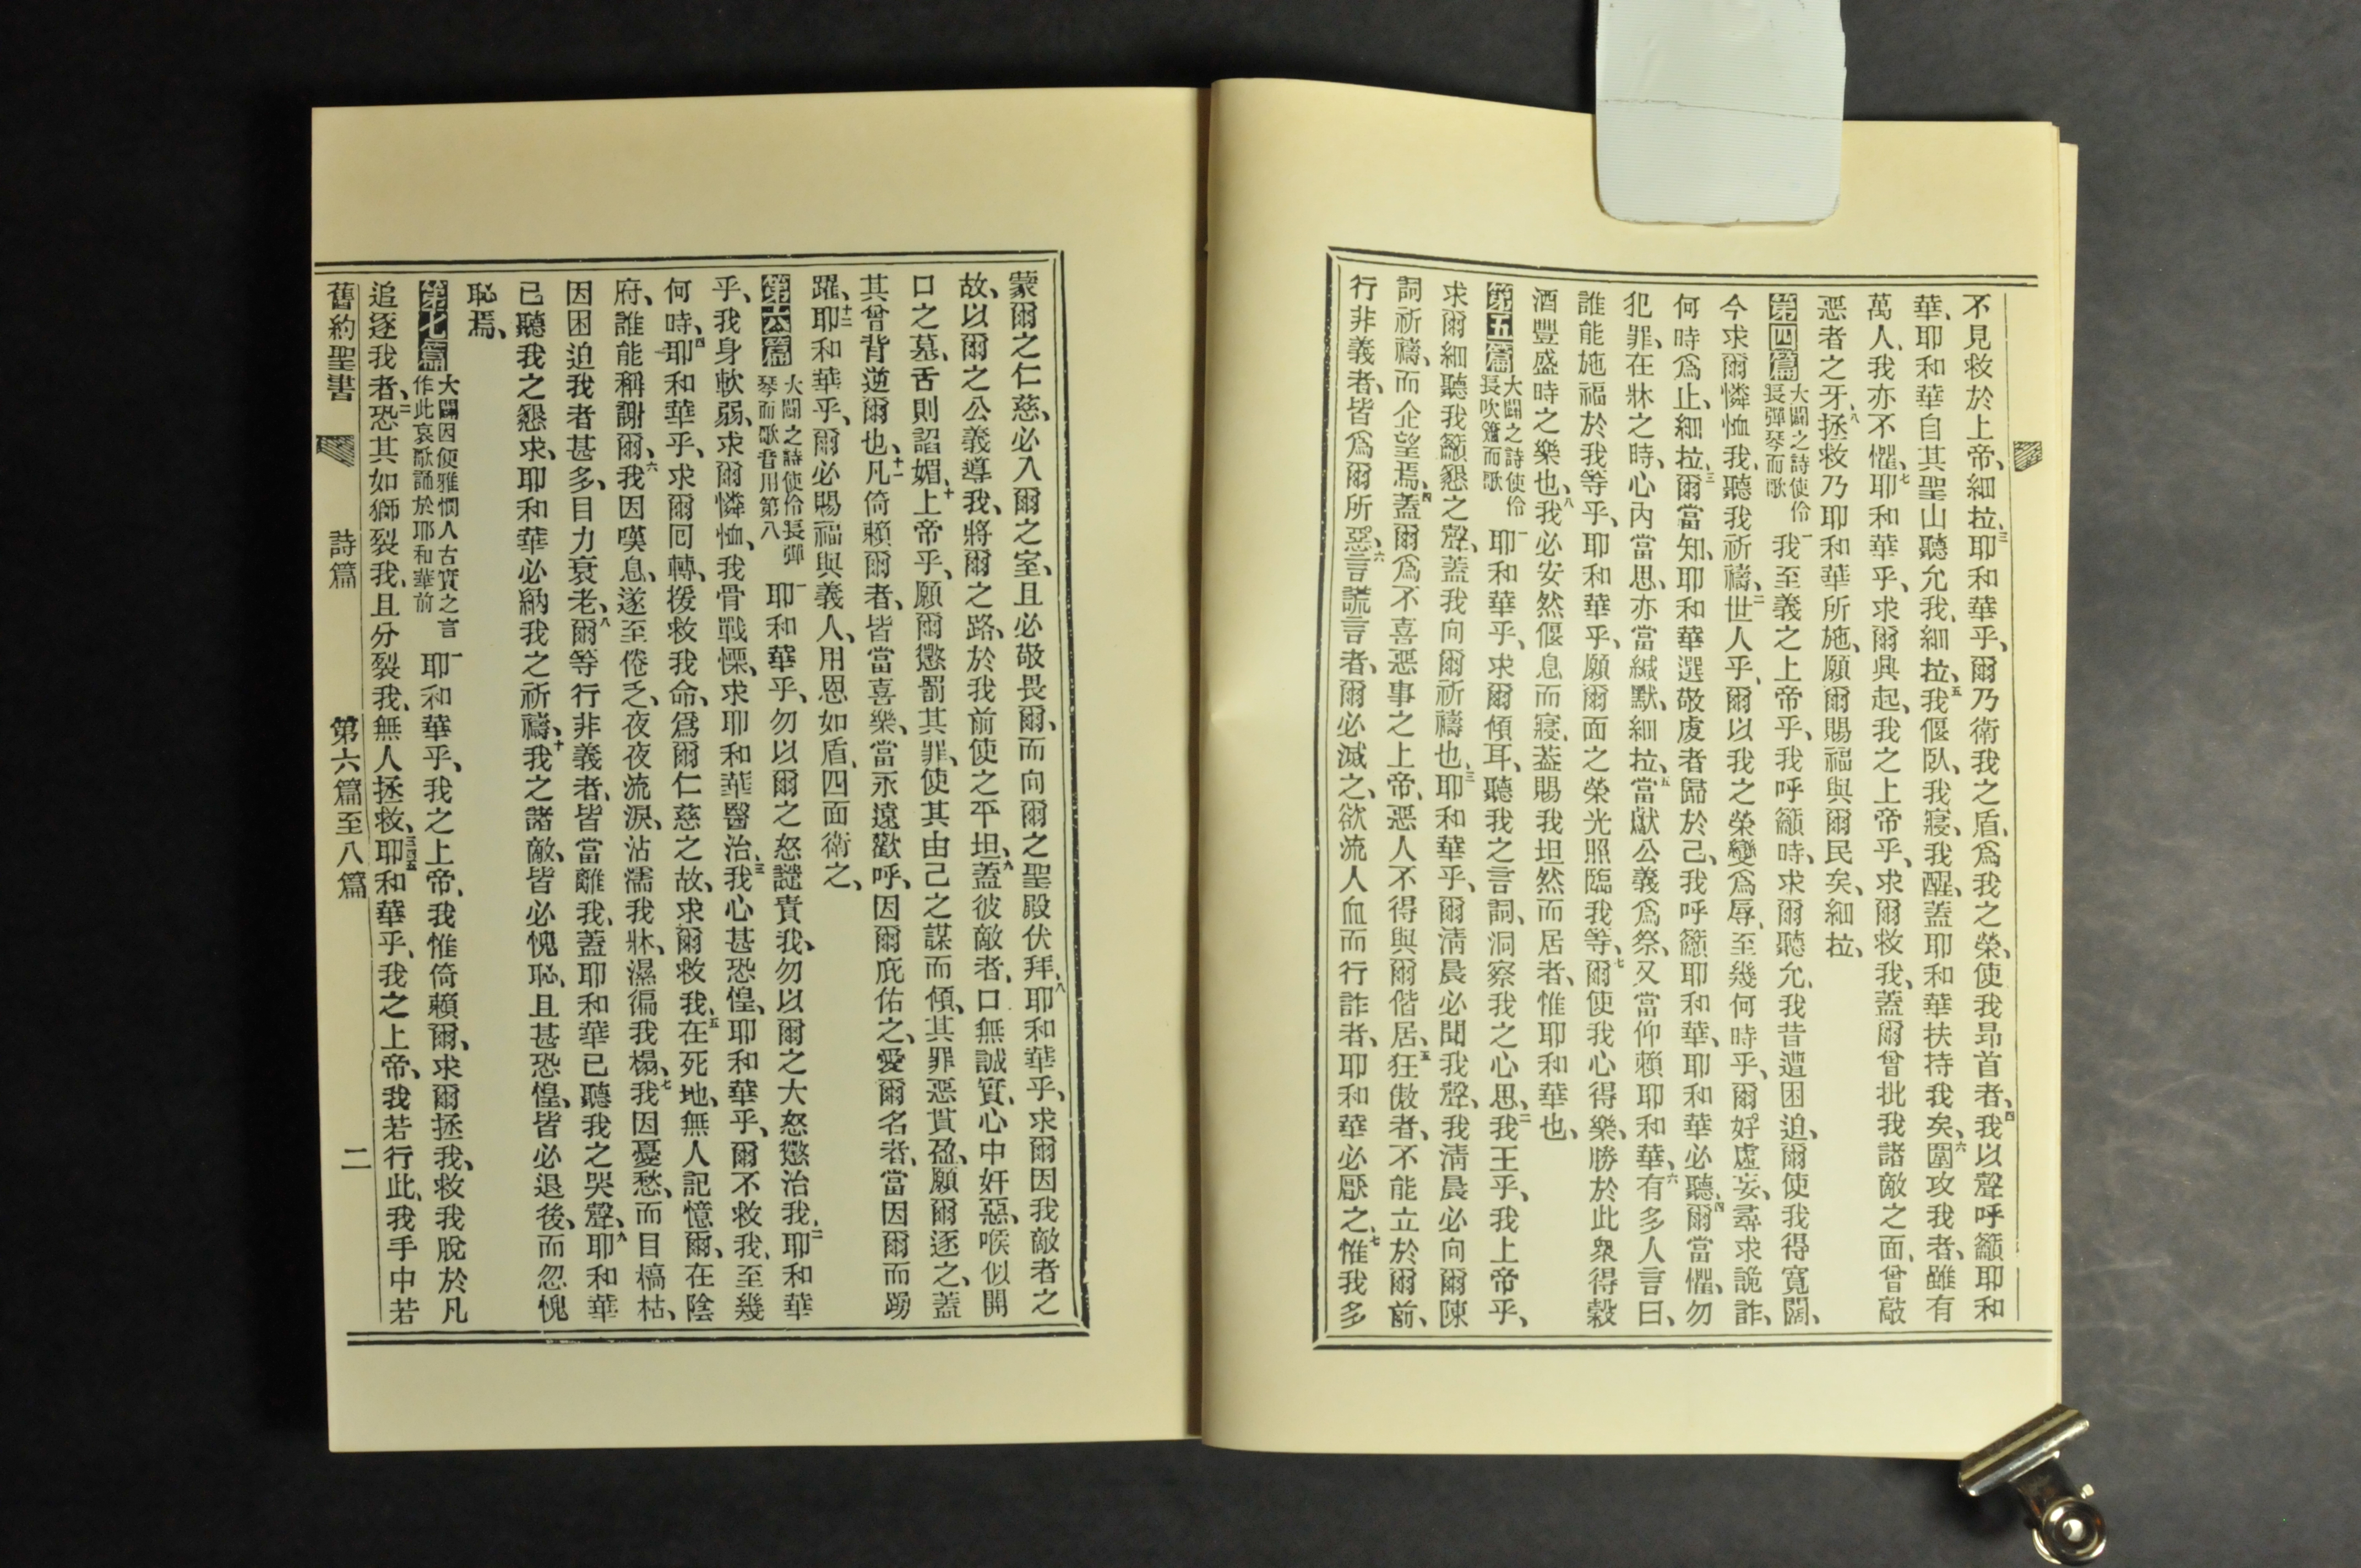 不見救於上帝、細拉、三耶和華乎、爾乃衛我之盾、爲我之榮、使我昂首者、四我以聲呼籲耶和
華、耶和華自其聖山聽允我、細拉、五我偃臥、我寢、我醒、蓋耶和華扶持我矣、六圍攻我者、雖有
萬人、我亦不懼、七耶和華乎、求爾興起、我之上帝乎、求爾救我、蓋爾曾批我諸敵之面、曾敲
惡者之牙、八拯救乃耶和華所施、願爾賜福與爾民矣、細拉、
第四篇 大闢之詩使伶長彈琴而歌 一我至義之上帝乎、我呼籲時、求爾聽允、我昔遭困迫、爾使我得寬闊、
今求爾憐恤我、聽我祈禱、二世人乎、爾以我之榮變爲辱、至幾何時乎、爾好虛妄、尋求詭詐、
何時爲止、細拉、三爾當知、耶和華選敬虔者歸於己、我呼籲耶和華、耶和華必聽、四爾當懼、勿
犯罪、在牀之時、心內當思、亦當緘默、細拉、五當獻公義爲祭、又當仰賴耶和華、六有多人言曰、
誰能施福於我等乎、耶和華乎、願爾面之榮光照臨我等、七爾使我心得樂、勝於此衆得穀
酒豐盛時之樂也、八我必安然偃息而寢、蓋賜我坦然而居者、惟耶和華也、
第五篇 大闢之詩使伶長吹簫而歌 一耶和華乎、求爾傾耳、聽我之言詞、洞察我之心思、二我王乎、我上帝乎、
求爾細聽我籲懇之聲、蓋我向爾祈禱也、三耶和華乎、爾清晨必聞我聲、我清晨必向爾陳
詞祈禱、而企望焉、四蓋爾爲不喜惡事之上帝、惡人不得與爾偕居、五狂傲者、不能立於爾前、
行非義者、皆爲爾所惡、六言謊言者、爾必滅之、欲流人血而行詐者、耶和華必厭之、七惟我多
蒙爾之仁慈、必入爾之室、且必敬畏爾、而向爾之聖殿伏拜、八耶和華乎、求爾因我敵者之
故、以爾之公義導我、將爾之路、於我前使之平坦、九蓋彼敵者、口無誠實、心中奸惡、喉似開
口之墓、舌則謟媚、十上帝乎、願爾懲罰其罪、使其由己之謀而傾、其罪惡貫盈、願爾逐之、蓋
其曾背逆爾也、十一凡倚賴爾者、皆當喜樂、當永遠歡呼、因爾庇佑之、愛爾名者、當因爾而踴
躍、十二耶和華乎、爾必賜福與義人、用恩如盾、四面衛之、
第六篇 大闢之詩使伶長彈琴而歌音用第八 一耶和華乎、勿以爾之怒譴責我、勿以爾之大怒懲治我、二耶和華
乎、我身軟弱、求爾憐恤、我骨戰慄、求耶和華醫治、三我心甚恐惶、耶和華乎、爾不救我、至幾
何時、四耶和華乎、求爾回轉、援救我命、爲爾仁慈之故、求爾救我、五在死地、無人記憶爾、在陰
府、誰能稱謝爾、六我因嘆息、遂至倦乏、夜夜流淚、沾濡我牀、濕徧我榻、七我因憂愁、而目槁枯、
因困迫我者甚多、目力衰老、八爾等行非義者、皆當離我、蓋耶和華已聽我之哭聲、九耶和華
已聽我之懇求、耶和華必納我之祈禱、十我之諸敵、皆必愧恥、且甚恐惶、皆必退後、而忽愧
恥焉、
第七篇 大闢因便雅憫人古實之言作此哀歌誦於耶和華前 一耶和華乎、我之上帝、我惟倚賴爾、求爾拯我、救我脫於凡
追逐我者、二恐其如獅裂我、且分裂我、無人拯救、三四五耶和華乎、我之上帝、我若行此、我手中若
舊約聖書 詩篇 第六篇至八篇 二